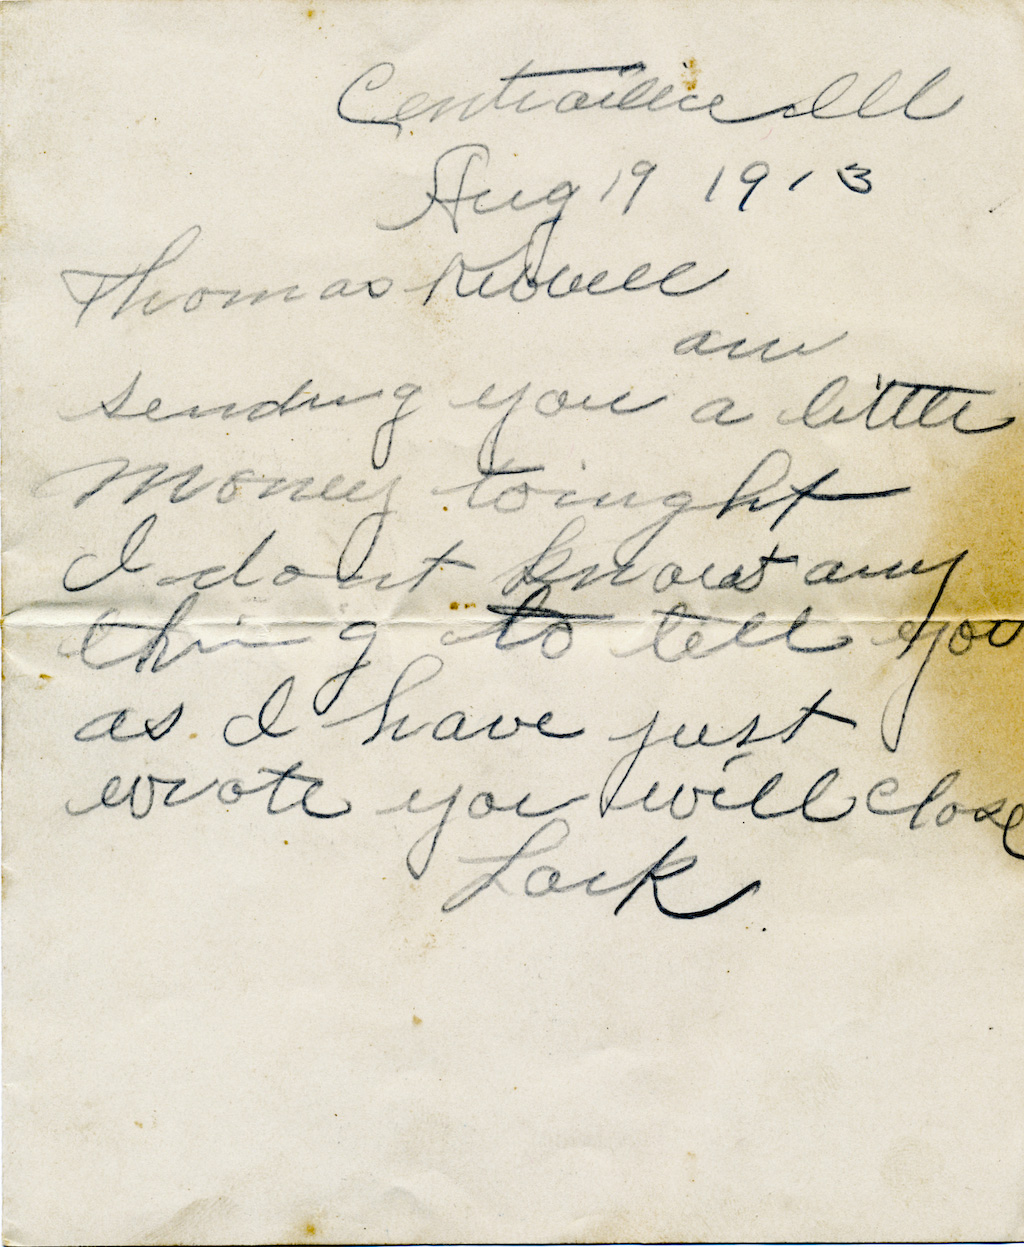 Ill
Aug 19 1913
Thomas
am
sending you a little
money toinght
I dont know any
thing to tell you
as I have just
wrote you will close